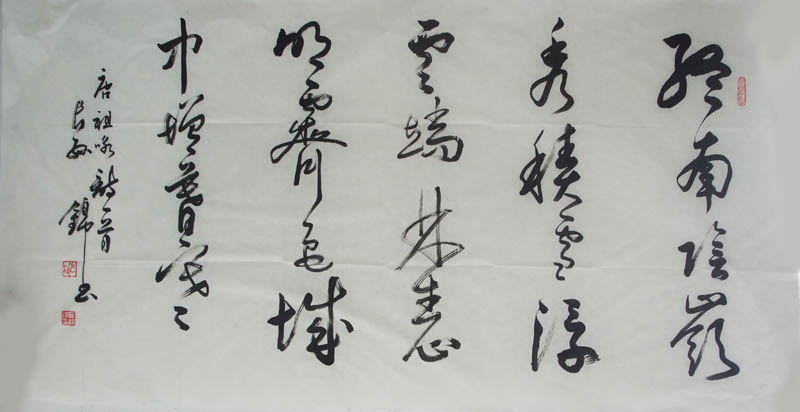 終南陰嶺
秀積雪浮
雲端林表
明霽色城
中增暮寒
唐祖咏詩一首
長錦书